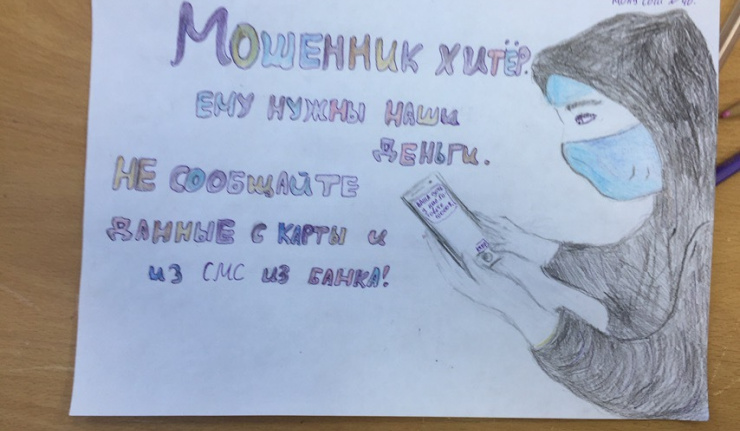 МОШЕННИК ХИТЁР.
ЕМУ НУЖНЫ НАШИ
ДЕНЬГИ.
НЕ СООБЩАЙТЕ
ДАННЫЕ С КАРТЫ И
ИЗ СМС ИЗ БАНКА!